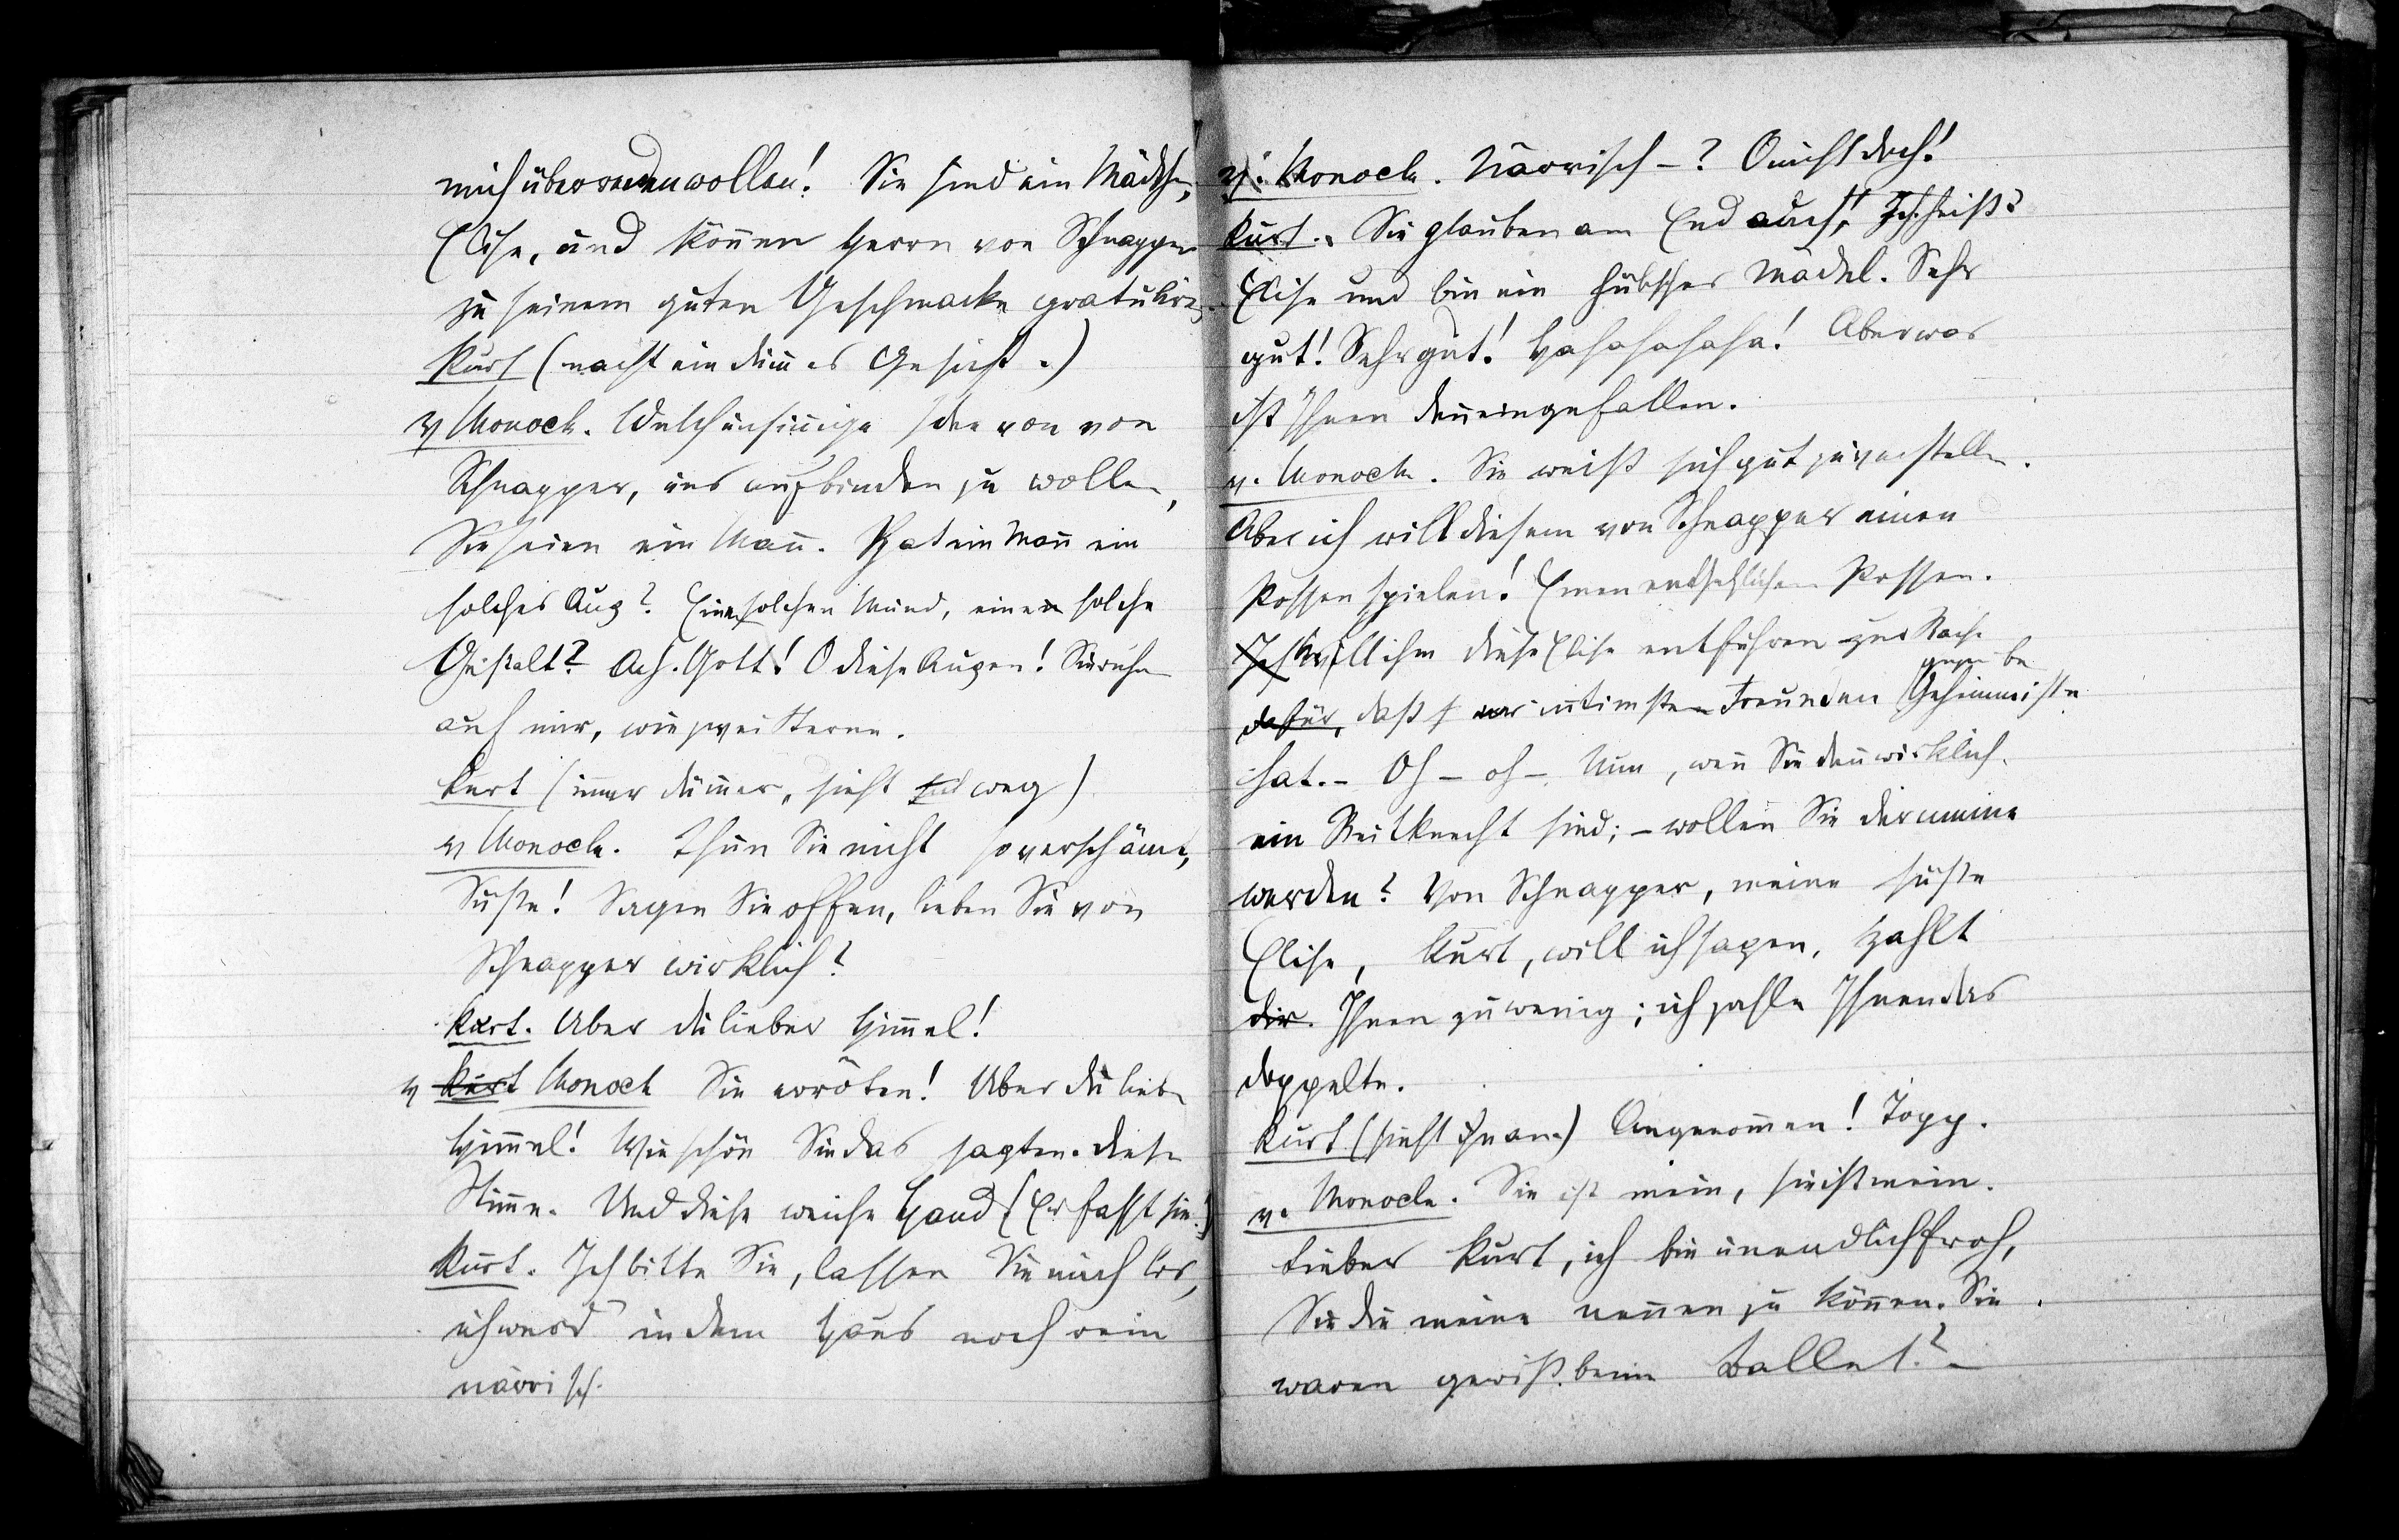 mich überreden wollen! Sie sind ein Mädchen,
Elise, und können Herrn von Schnapper
zu seinem guten Geschmacke gratulire.
Kurt (macht ein dum̅es Gesicht.)
v Monocle. Welch unsin̅ige Idee von von
Schnapper, uns aufbinden zu wollen,
Sie seien ein Man̅. Hat ein Man̅ ein
solches Aug? Einen solchen Mund, eine solche
Gestalt? Ach. Gott! O diese Augen! Sie ruhen
auf mir, wie zwei Sterne.
Kurt (im̅er düm̅er, sieht weg)
v Monocle. Thun Sie nicht so verschämt,
Süße! Sagen Sie offen, lieben Sie von
Schnapper wirklich?
Kurt. Aber du lieber Him̅el!
v Kurt Monocle Sie erröten! Aber du lieber
Him̅el! Wie schön Sie das sagten. Diese
Stim̅e. Und diese weiche Hand (Er fasst sie!)
Kurt. Ich bitte Sie, lassen Sie mich los,
ich werd in dem Haus noch rein
närrisch.
v. Monocle. Närrisch –? O nicht doch!
Kurt. Sie glauben am End auch! Ich heiß
Elise und bin ein hübsches Mädel. Sehr
gut! Sehr gut! Hahahahaha! Aber was
ist Ihnen den̅ eingefallen.
v. Monocle. Sie weiß sich gut zu verstellen.
Aber ich will diesem von Schnapper einen
Possen spielen! Einen entsetzlichen Possen.
Ich will ihm diese Elise entführen zur Rache
gegen be
dafür, daß intimsten Freunden Geheimniße
hat. – Oh – oh – Nun, wen̅ Sie den̅ wirklich
ein Reitknecht sind; – wollen Sie der meine
werden? Von Schnapper, meine süße
Elise, Kurt, will ich sagen, zahlt
dir. Ihnen zu wenig; ich zahle Ihnen das
doppelte.
Kurt (sieht ihn an.) Angenom̅en! Topp.
v. Monocle. Sie ist mein, sie ist mein.
Lieber Kurt, ich bin unendlich froh,
Sie die meine nen̅en zu kön̅en. Sie
waren gewiß beim Ballet? –